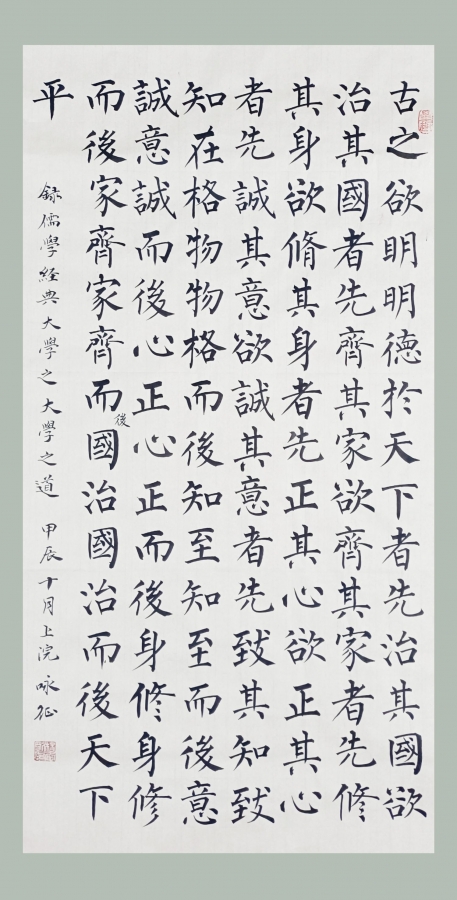 古之欲明明德於天下者先治其國欲
治其國者先齊其家欲齊其家者先修
其身欲脩其身者先正其心欲正其心
者先誠其意欲誠其意者先致其知致
知在格物物格而後知至知至而後意
誠意誠而後心正心正而後身修身修
而後家齊家齊而後國治國治而後天下
平
録儒學經典大學之大學之道 甲辰十月上浣 咏征